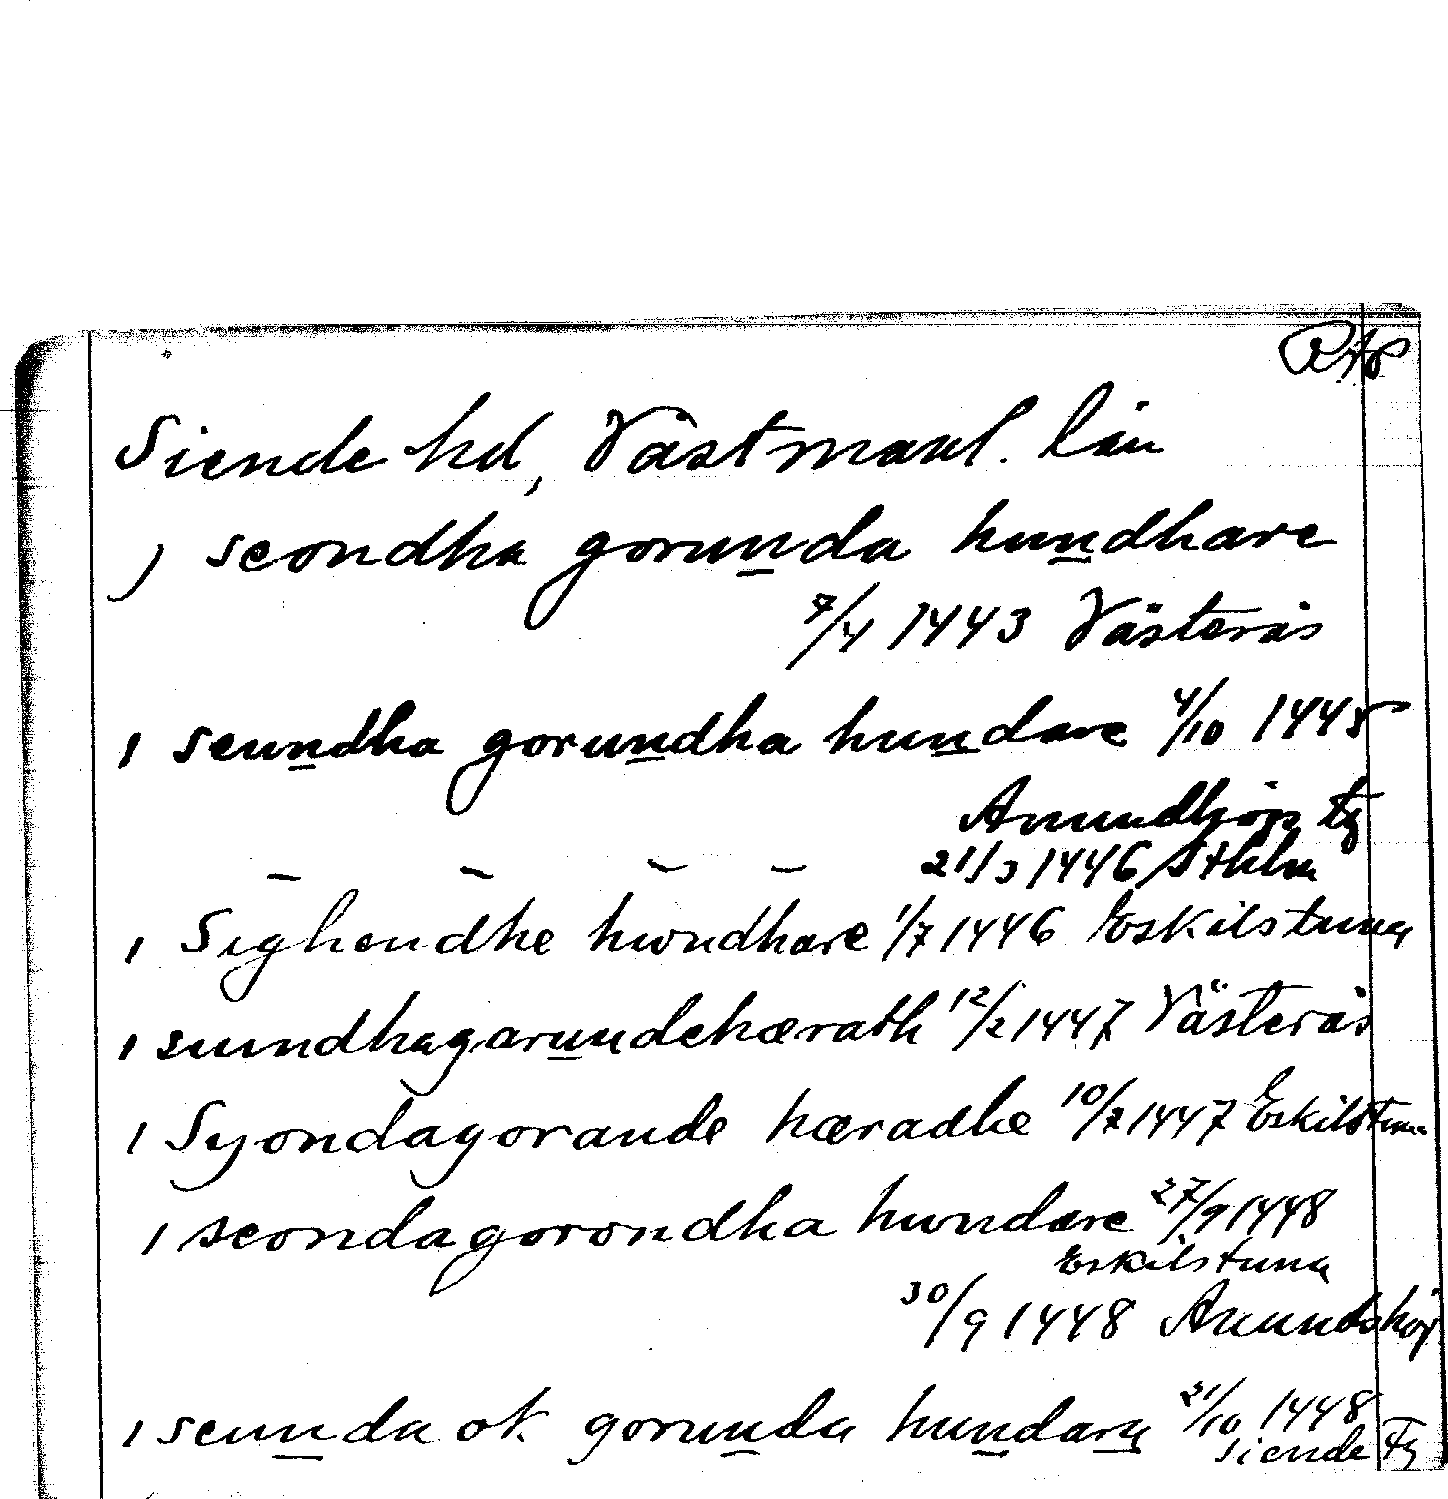 RAP
Siende hd, Västmanl. län
) seondha gorunda hundhare
7/4 1443 Västerås
1 seundha gorundha hundare 4/10 1445
Anundhög tg
21/3 1446 Sthlm
1 Sighendhe hwndhare 1/7 1446 Eskilstuna
1 siundhagarundehærath 12/2 1447 Västerås
1 Syondagorande hæradhe 10/7 1447 Eskilstuna
1 seondagorondha hwndare 27/9 1448
Eskilstuna
30/9 1448 Anundshög
1 seunda ok gorunda hundary 21/10 1448
Siende tg